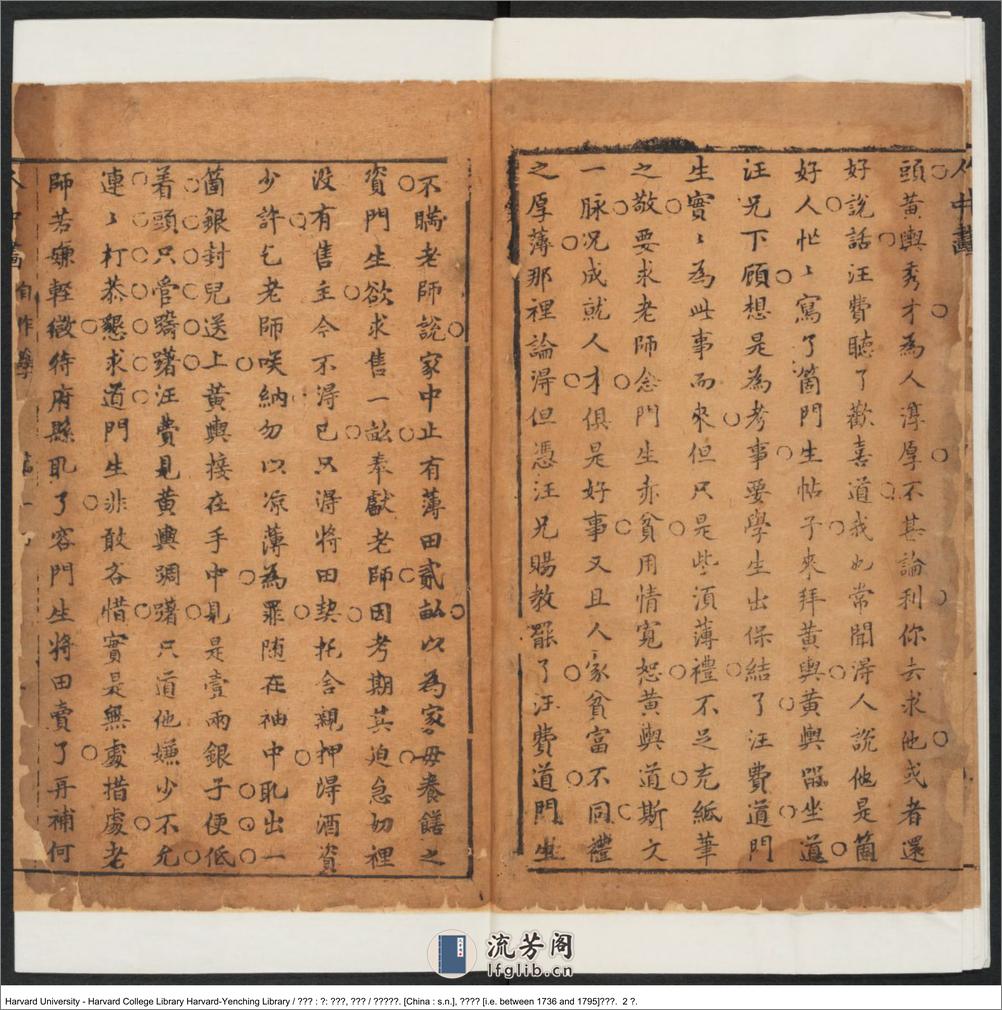 人中畫
頭黃輿秀才為人淳厚不甚論利你去求他或者還
好說話汪費聽了歡喜道我也常聞得人說他是箇
好人忙〻寫了箇門生帖子來拜黃輿黃輿留坐道
汪兄下顧想是為考事要學生出保結了汪費道門
生實〻為此事而來但只是些須薄禮不足充紙筆
之敬要求老師念門生赤貧用情寬恕黃輿道斯文
一脉况成就人才俱是好事又且人家貧富不同禮
之厚薄那裡論得但憑汪兄賜教罷了汪費道門生
不瞞老師說家中止有薄田貳畝以為家母養饍之
資門生欲求售一畝奉獻老師因考期甚迫急切裡
没有售主今不得已只得將田契托舍親押得酒資
少許乞老師笑納勿以凉薄為罪随在袖中取出一
箇銀封兒送上黃輿接在手中見是壹兩銀子便低
着頭只管躊躇汪費見黃輿躊躇只道他嫌少不允
連〻打恭懇求道門生非敢吝惜實是無處措處老
師若嫌輕微待府縣取了容門生將田賣了再補何
人中畫 自作孽
流芳阁
lfglib.cn
Harvard University - Harvard College Library Harvard-Yenching Library / ??? : ?: ???, ??? / ?????. [China : s.n.], ???? [i.e. between 1736 and 1795]???. 2 ?.